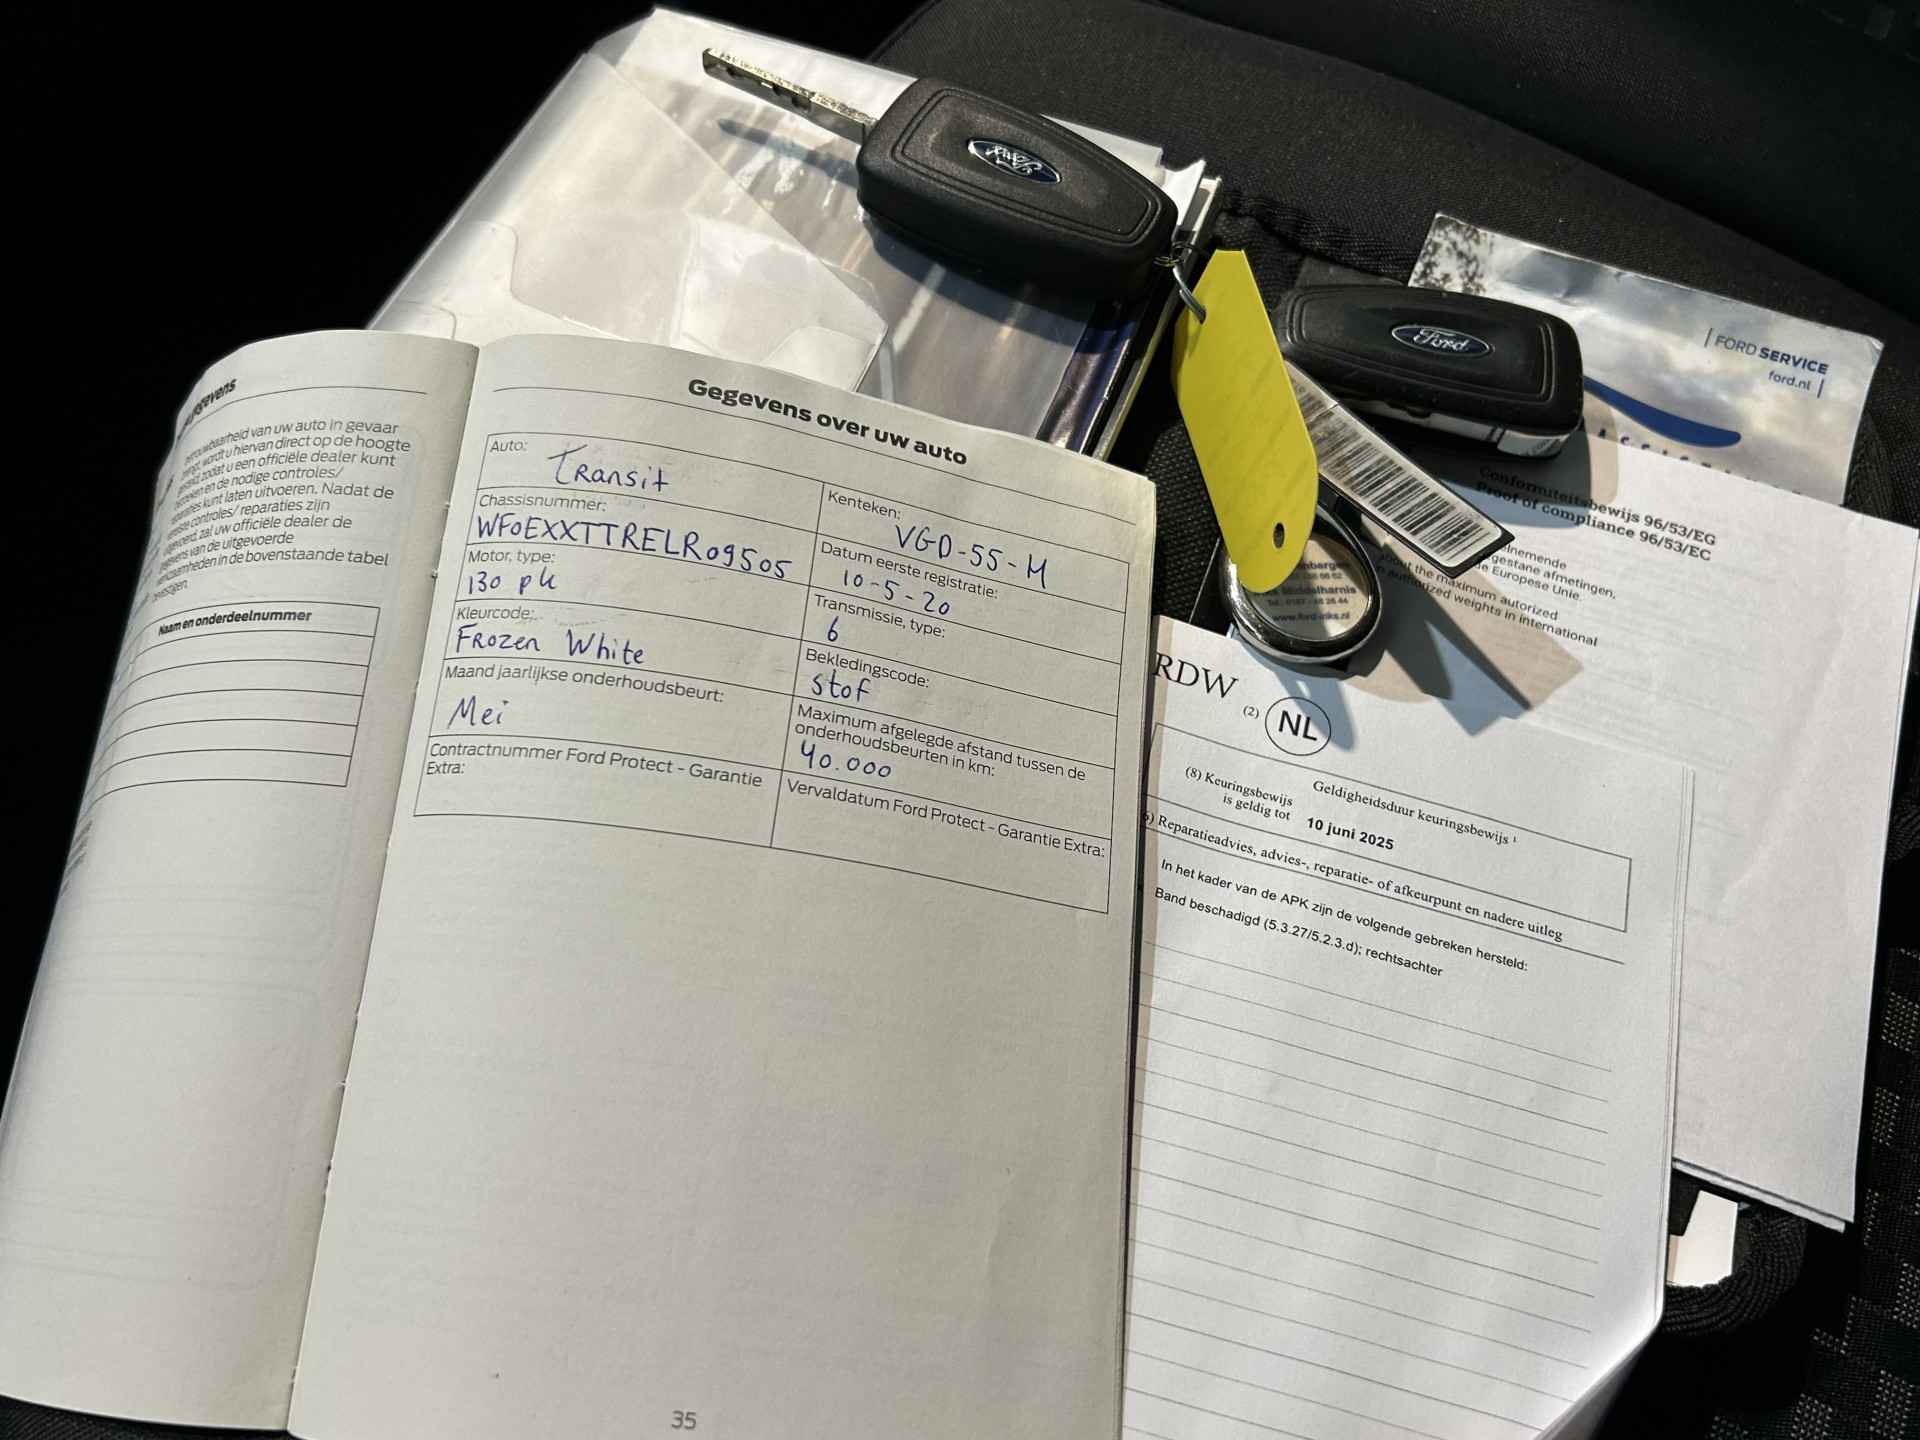 Ford
Ford
FORD SERVICE
ford.nl
gegevens
van uw auto in gevaar
wordt u hiervan direct op de hoogte
zodat u een officiële dealer kunt
en de nodige controles/
kunt laten uitvoeren. Nadat de
controles/ reparaties zijn
uitgevoerd, zal uw officiële dealer de
gegevens van de uitgevoerde
werkzaamheden in de bovenstaande tabel
Naam en onderdeelnummer
Gegevens over uw auto
Auto:
Transit
Kenteken:
VGD-55-M
Chassisnummer:
WF0EXXTTRELR09505
Datum eerste registratie:
10-5-20
Motor, type:
130 pk
Transmissie, type:
6
Kleurcode:
Frozen White
Bekledingscode:
stof
Maand jaarlijkse onderhoudsbeurt:
Mei
Maximum afgelegde afstand tussen de
onderhoudsbeurten in km:
40.000
Contractnummer Ford Protect - Garantie
Extra:
Vervaldatum Ford Protect - Garantie Extra:
35
Conformiteitsbewijs 96/53/EG
Proof of compliance 96/53/EC
gestane afmetingen,
de Europese Unie.
about the maximum authorized
authorized weights in international
Middelharnis
RDW
(2)
NL
Geldigheidsduur keuringsbewijs 1
(8) Keuringsbewijs
is geldig tot
10 juni 2025
Reparatieadvies, advies-, reparatie- of afkeurpunt en nadere uitleg
In het kader van de APK zijn de volgende gebreken hersteld:
Band beschadigd (5.3.27/5.2.3.d); rechtsachter